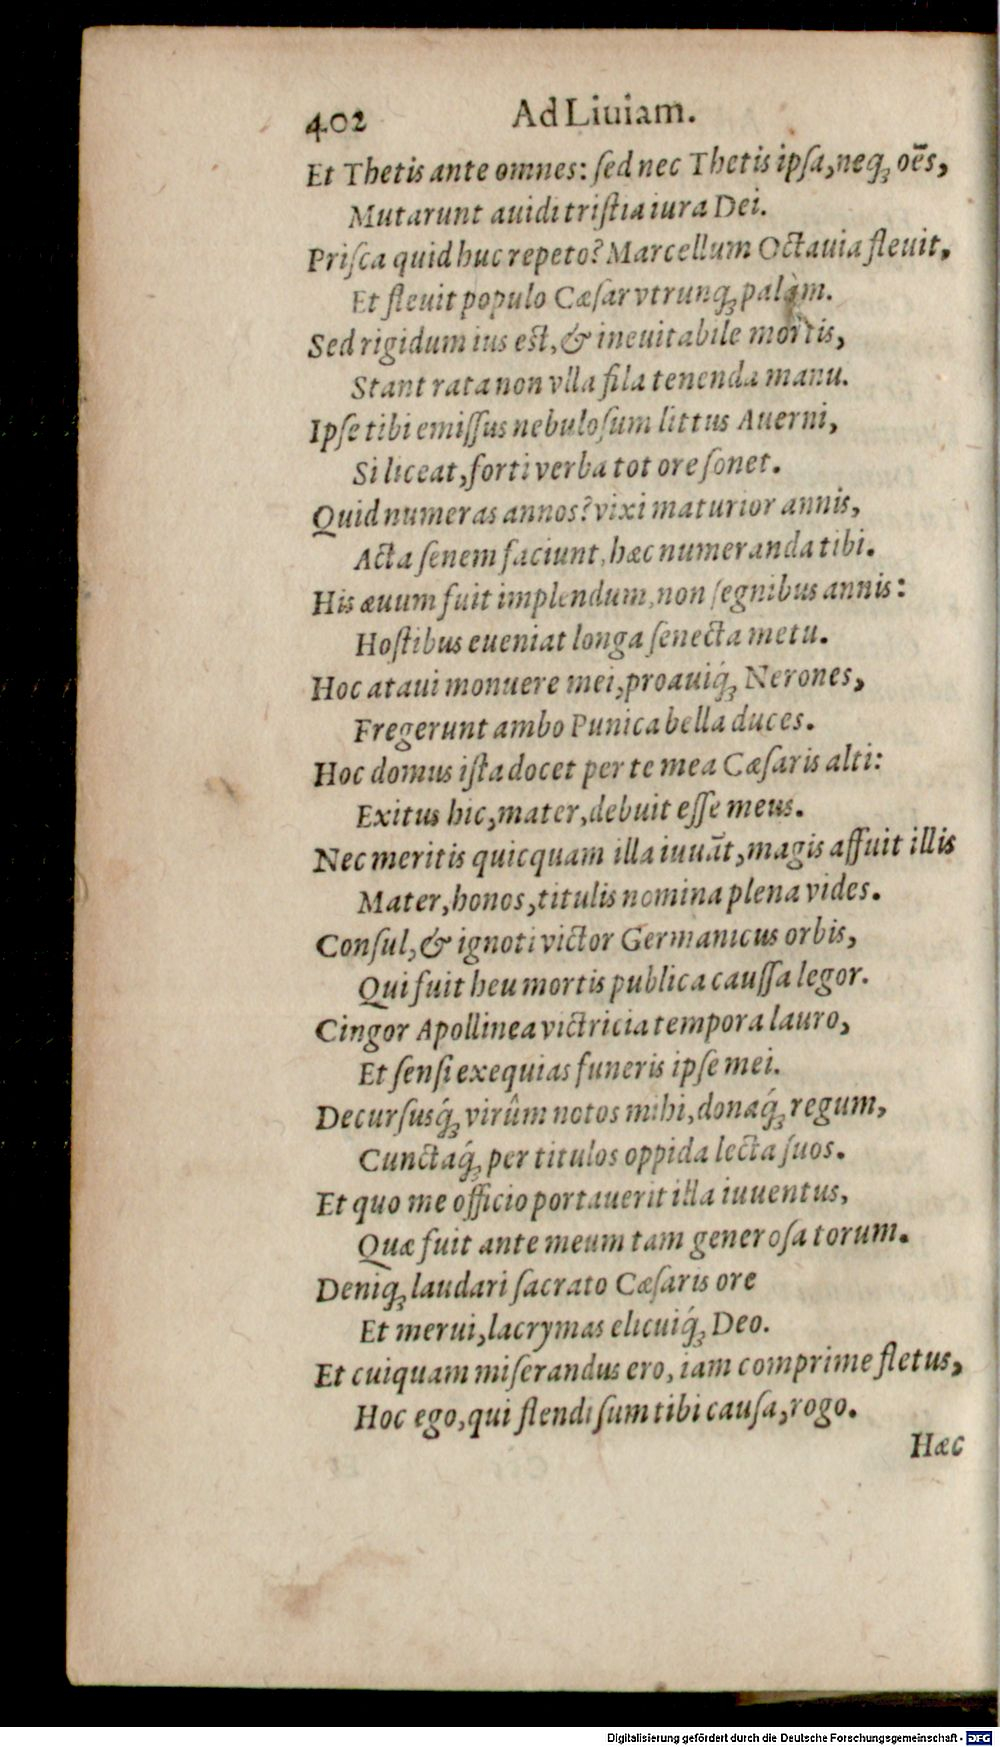 402 Ad Liuiam.
Et Thetis ante omnes: ſed nec Thetis ipſa, neq; oēs,
Mutarunt auidi triſtia iura Dei.
Priſca quid huc repeto? Marcellum Octauia fleuit,
Et fleuit populo Cæſar vtrunq; palàm.
Sed rigidum ius est, & ineuitabile mortis,
Stant rata non vlla fila tenenda manu.
Ipſe tibi emiſſus nebuloſum littus Auerni,
Si liceat, forti verba tot ore ſonet.
Quid numeras annos? vixi maturior annis,
Acta ſenem faciunt, hæc numeranda tibi.
His æuum fuit implendum, non ſegnibus annis:
Hoſtibus eueniat longa ſenecta metu.
Hoc ataui monuere mei, proauiq́; Nerones,
Fregerunt ambo Punica bella duces.
Hoc domus iſta docet per te mea Cæſaris alti:
Exitus hic, mater, debuit eſſe meus.
Nec meritis quicquam illa iuuāt, magis affuit illis
Mater, honos, titulis nomina plena vides.
Conſul, & ignoti victor Germanicus orbis,
Qui fuit heu mortis publica cauſſa legor.
Cingor Apollinea victricia tempora lauro,
Et ſenſi exequias funeris ipſe mei.
Decurſusq́; virûm notos mihi, donaq́; regum,
Cunctaq́; per titulos oppida lecta ſuos.
Et quo me officio portauerit illa iuuentus,
Quæ fuit ante meum tam generoſa torum.
Deniq; laudari ſacrato Cæſaris ore
Et merui, lacrymas elicuiq́; Deo.
Et cuiquam miſerandus ero, iam comprime fletus,
Hoc ego, qui flendi ſum tibi cauſa, rogo.
Hæc
Digitalisierung gefördert durch die Deutsche Forschungsgemeinschaft - DFG